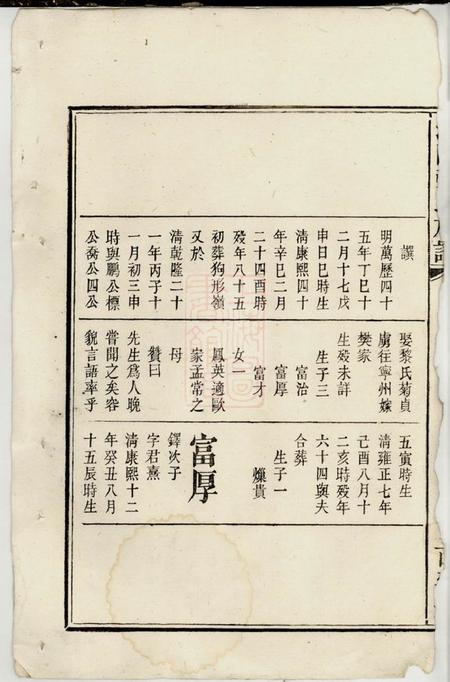 譔
明萬歷四十
五年丁巳十
二月十七戊
申日巳時生
清康熙四十
年辛巳二月
二十四酉時
歿年八十五
初葬狗形嶺
又於
清乾隆二十
一年丙子十
一月初三申
時與鵬公標
公喬公四公
娶黎氏菊貞
虜往寧州嫁
樊家
生歿未詳
生子三
富治
富厚
富才
女一
鳳英適歐
家孟常之
母
贊曰
先生爲人晚
嘗聞之矣容
貌言語率乎
五寅時生
清雍正七年
己酉八月十
二亥時歿年
六十四與夫
合葬
生子一
貴
富厚
鐸次子
字君熹
清康熙十二
年癸丑八月
十五辰時生